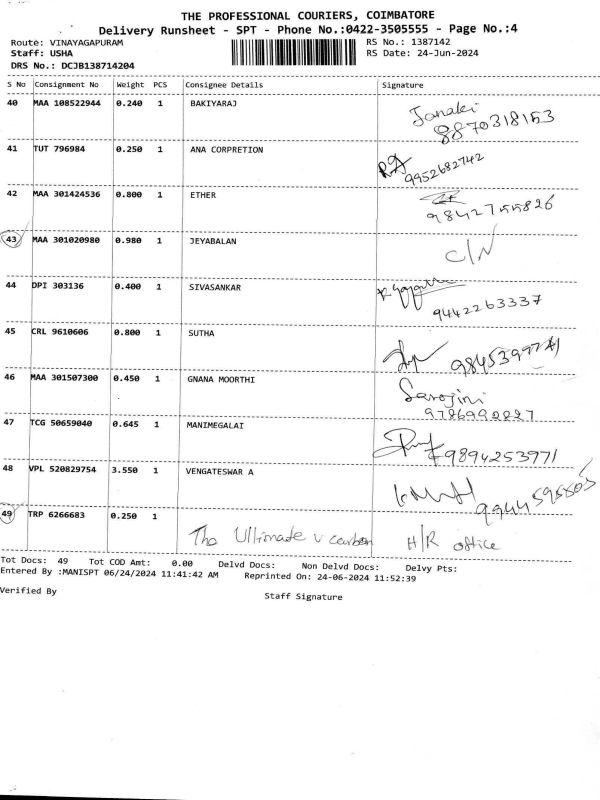 THE PROFESSIONAL COURIERS, COIMBATORE
Delivery Runsheet - SPT - Phone No.:0422-3505555 - Page No.:4
Route: VINAYAGAPURAM RS No.: 1387142
Staff: USHA RS Date: 24-Jun-2024
DRS No.: DCJB138714204
S No Consignment No Weight PCS Consignee Details Signature
40 MAA 108522944 0.240 1 BAKIYARAJ Janaki
8870318153
41 TUT 796984 0.250 1 ANA CORPRETION
9952682742
42 MAA 301424536 0.800 1 ETHER
9842755826
43 MAA 301020980 0.980 1 JEYABALAN C/N
44 DPI 303136 0.400 1 SIVASANKAR
9442263337
45 CRL 9610606 0.800 1 SUTHA
46 MAA 301507300 0.450 1 GNANA MOORTHI Sarojini
47 TCG 50659040 0.645 1 MANIMEGALAI
9894253971
48 VPL 520829754 3.550 1 VENGATESWAR A
49 TRP 6266683 0.250 1
The Ultimade v carbon H/R office
Tot Docs: 49 Tot COD Amt: 0.00 Delvd Docs: Non Delvd Docs: Delvy Pts:
Entered By :MANISPT 06/24/2024 11:41:42 AM Reprinted On: 24-06-2024 11:52:39
Verified By
Staff Signature